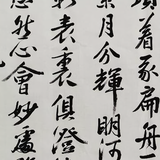 頃着我扁舟
素月分輝明河
影表裏俱澄
悠然心會妙處